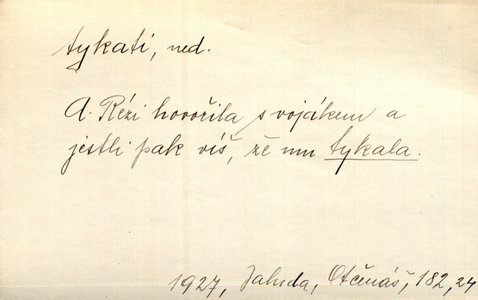 tykati, ned.
A Rézi hovořila s vojákem a
jestli pak víš, že mu tykala.
1927, Jahoda, Otčenáš, 182,24